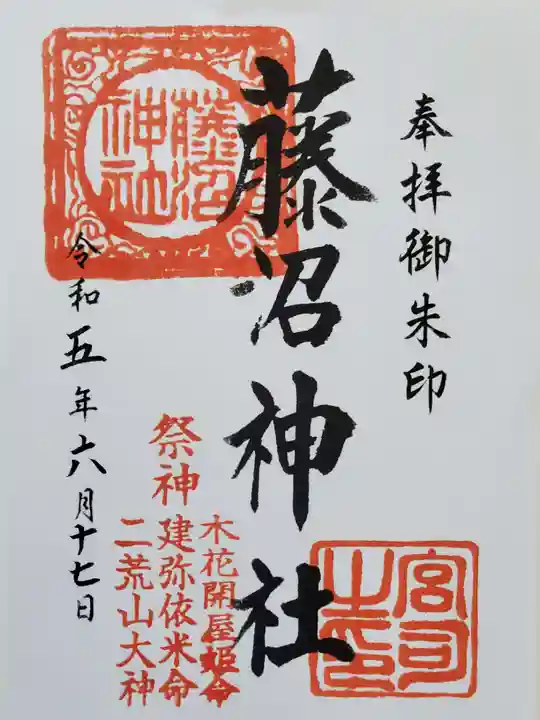 奉拝御朱印
藤沼神社
藤沼
神社
宮司
之印
木花開屋姫命
祭神 建弥依米命
二荒山大神
令和五年六月十七日